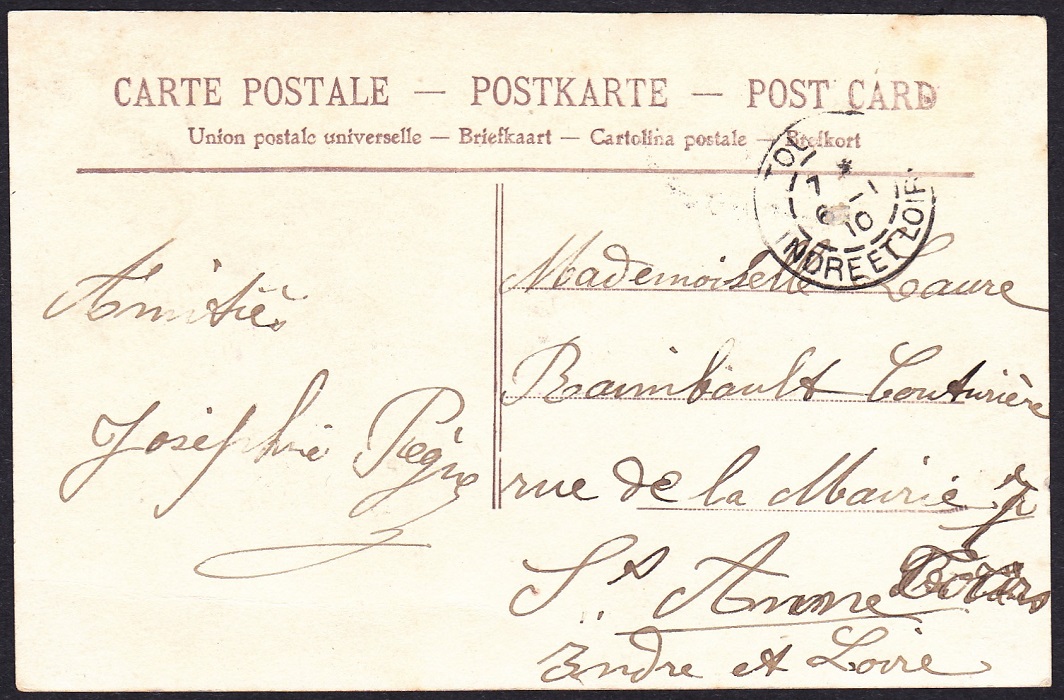 CARTE POSTALE — POSTKARTE — POST CARD
Union postale universelle — Briefkaart — Cartolina postale — Brefkort
7 *
6 -1
10
INDRE ET LOIRE
Amitiés
Joséphine
Mademoiselle Laure
Raimbault Couturière
rue de la Mairie
St. Anne Tours
Indre et Loire